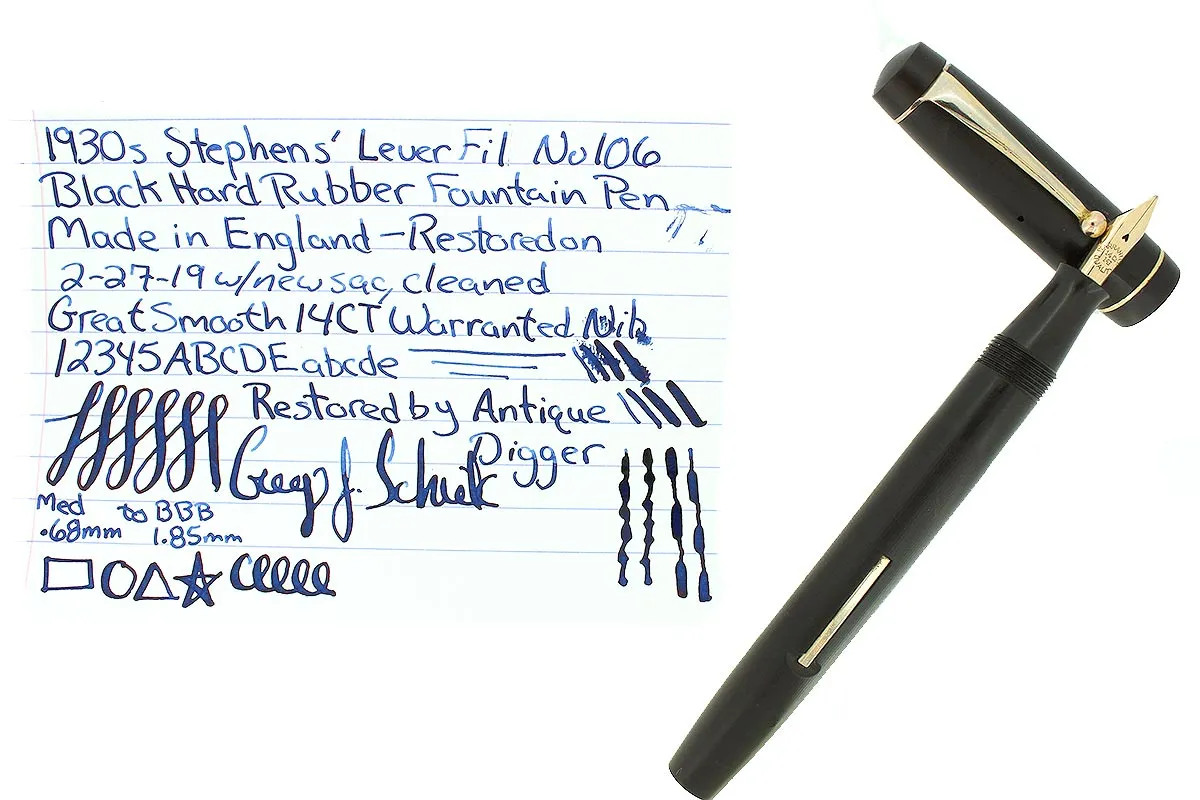 1930s Stephens' Lever Fil No 106
Black Hard Rubber Fountain Pen
Made in England - Restored on
2-27-19 w/new sac, cleaned
Great Smooth 14CT Warranted Nib
12345 ABCDE abcde
Restored by Antique
Digger
Med to BBB
.68mm 1.85mm